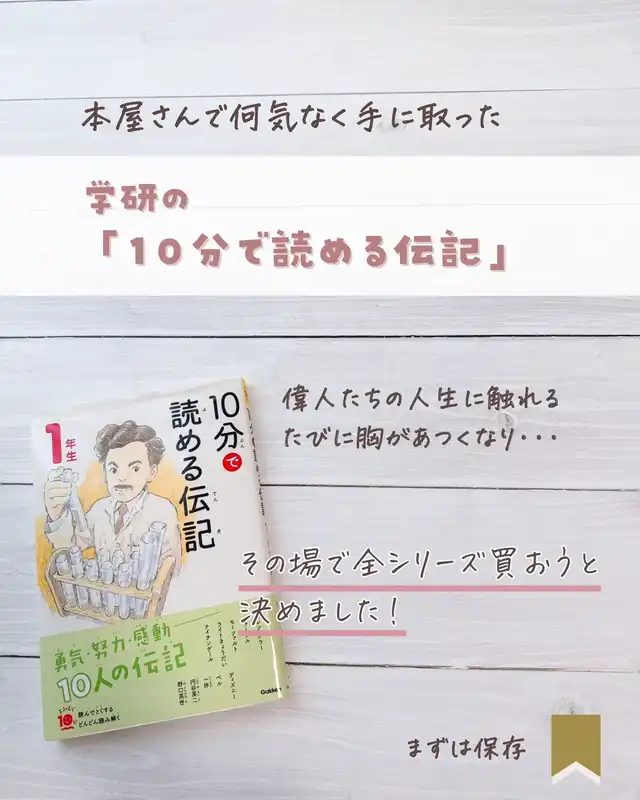 本屋さんで何気なく手に取った
学研の
「10分で読める伝記」
偉人たちの人生に触れる
たびに胸があつくなり・・・
その場で全シリーズ買おうと
決めました!
10分で
読める伝記
1年生
勇気・努力・感動
10人の伝記
モーツァルト
ライトきょうだい
ナイチンゲール
ディズニー
ベル
一休
円谷英二
野口英世
読んでとくする
どんどん読み解く
Gakken
まずは保存